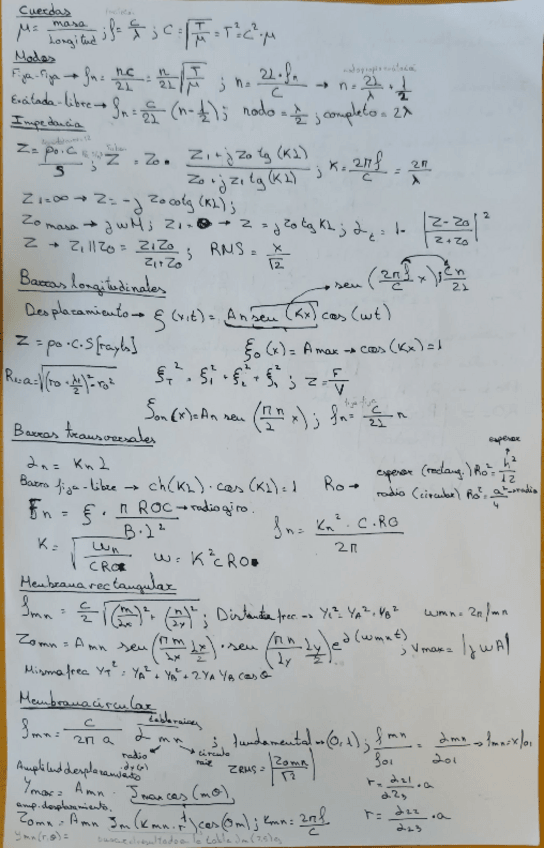 Cuerdas
μ = masa / Longitud ; f = c/λ ; C = √(T/μ) = T = c²·μ
Modos
Fija-Fija → fn = nc/2L = n/2L √(T/μ) ; n = 2L·fn/c → n = 2L/λ + 1/2
Excitada-libre → fn = c/2L (n - 1/2) ; nodo = λ/2 ; completo = 2λ
Impedancia
Z = ρo·c/S ; Z = Zo · (Z1 + j Zo tg(KL)) / (Zo + j Z1 tg(KL)) ; K = 2πf/c = 2π/λ
Z1 = ∞ → Z = -j Zo cotg(KL) ;
Zo masa → jωM ; Z1 = → Z = j Zo tg KL ; αt = 1 - |(Z - Zo)/(Z + Zo)|²
Z → Z1 || Zo = Z1Zo/(Z1+Zo) ; RMS = x/√2
Barras longitudinales
→ sen (2πf/c x) ; cn/2L
Desplazamiento → ξ(x,t) = An sen(Kx) cos(ωt)
Z = ρo·C·S [rayls]
ξo(x) = Amax → cos(Kx) = 1
ξT² = ξ1² + ξ2² + ξ3² ; Z = F/V
ξon(x) = An sen (πn/2 x) ; fn = c/2L n
Barras transversales
αn = Kn L
Barra fija-libre → ch(KL)·cos(KL) = 1
Ro → espesor (rectang.) Ro² = h²/12 espesor
radio (circular) Ro² = a²/4 → radio
Fn = ξ · π ROC / B·L² → radio giro.
fn = Kn²·C·RO / 2π
K = √(ωn/CRO) ω = K²cRO
Membrana rectangular
fmn = c/2 √((m/Lx)² + (n/Ly)²) ; Distinta frec → YT² = YA² + YB² ωmn = 2πfmn
Zomn = Amn sen (πm/Lx Lx/2) · sen (πn/Ly Ly/2) e^j(ωmn t) ; Vmax = |jωA|
Misma frec YT² = YA² + YB² + 2YA YB cos θ
Membrana circular
tabla raices
fmn = c/2πa αmn ; fundamental → (0,1) ; fmn/f01 = αmn/α01 → fmn = x f01
radio circulo
Amplitud desplazamiento
ZRMS = |Zomn/√2|
Ymax = Amn · Jmax cos(mθ)
r = α21/α23 · a
amp. desplazamiento.
Zomn = Amn Jm(Kmn·r) cos(θm) ; Kmn = 2πf/c
r = α22/α23 · a
Ymn(r,θ) =